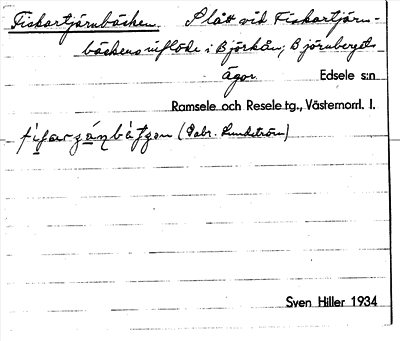 Fiskartjärnbäcken. Slått vid Fiskartjärn-
bäckens inflöde i Björkån; Björnbergets
ägor. Edsele s:n
Ramsele och Resele tg., Västernorrl. l.
(Gabr. Lundström)
Sven Hiller 1934